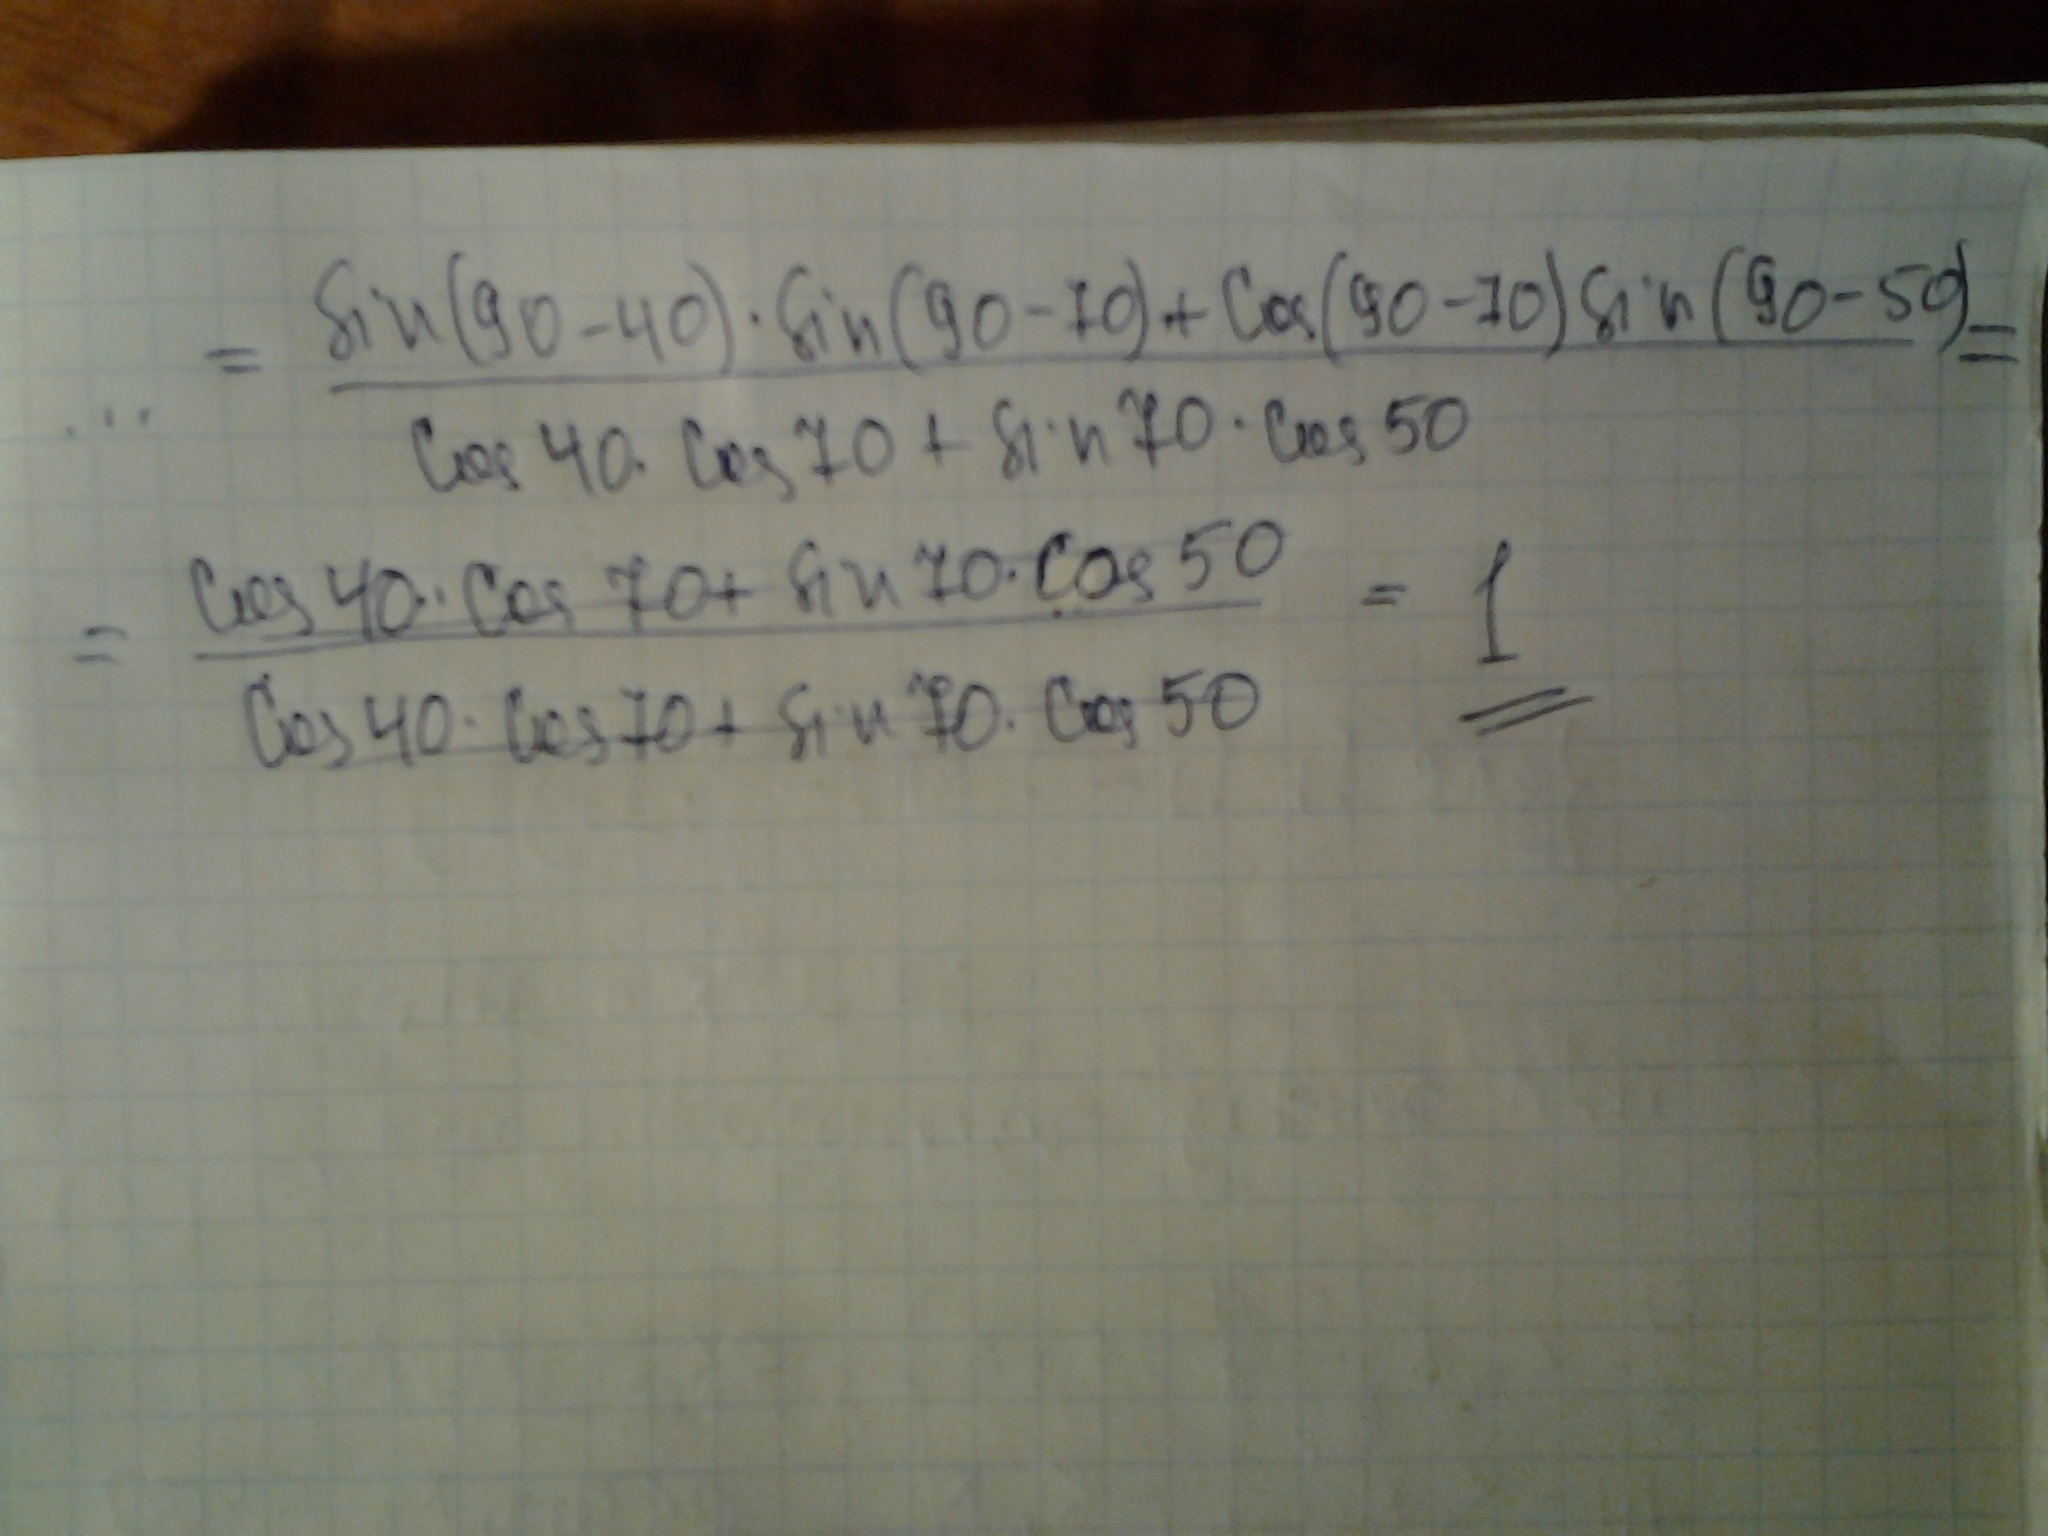 ... = sin(90-40)·sin(90-70)+cos(90-70)sin(90-50) =
cos40·cos70+sin70·cos50
= cos40·cos70+sin70·cos50 = 1
cos40·cos70+sin70·cos50